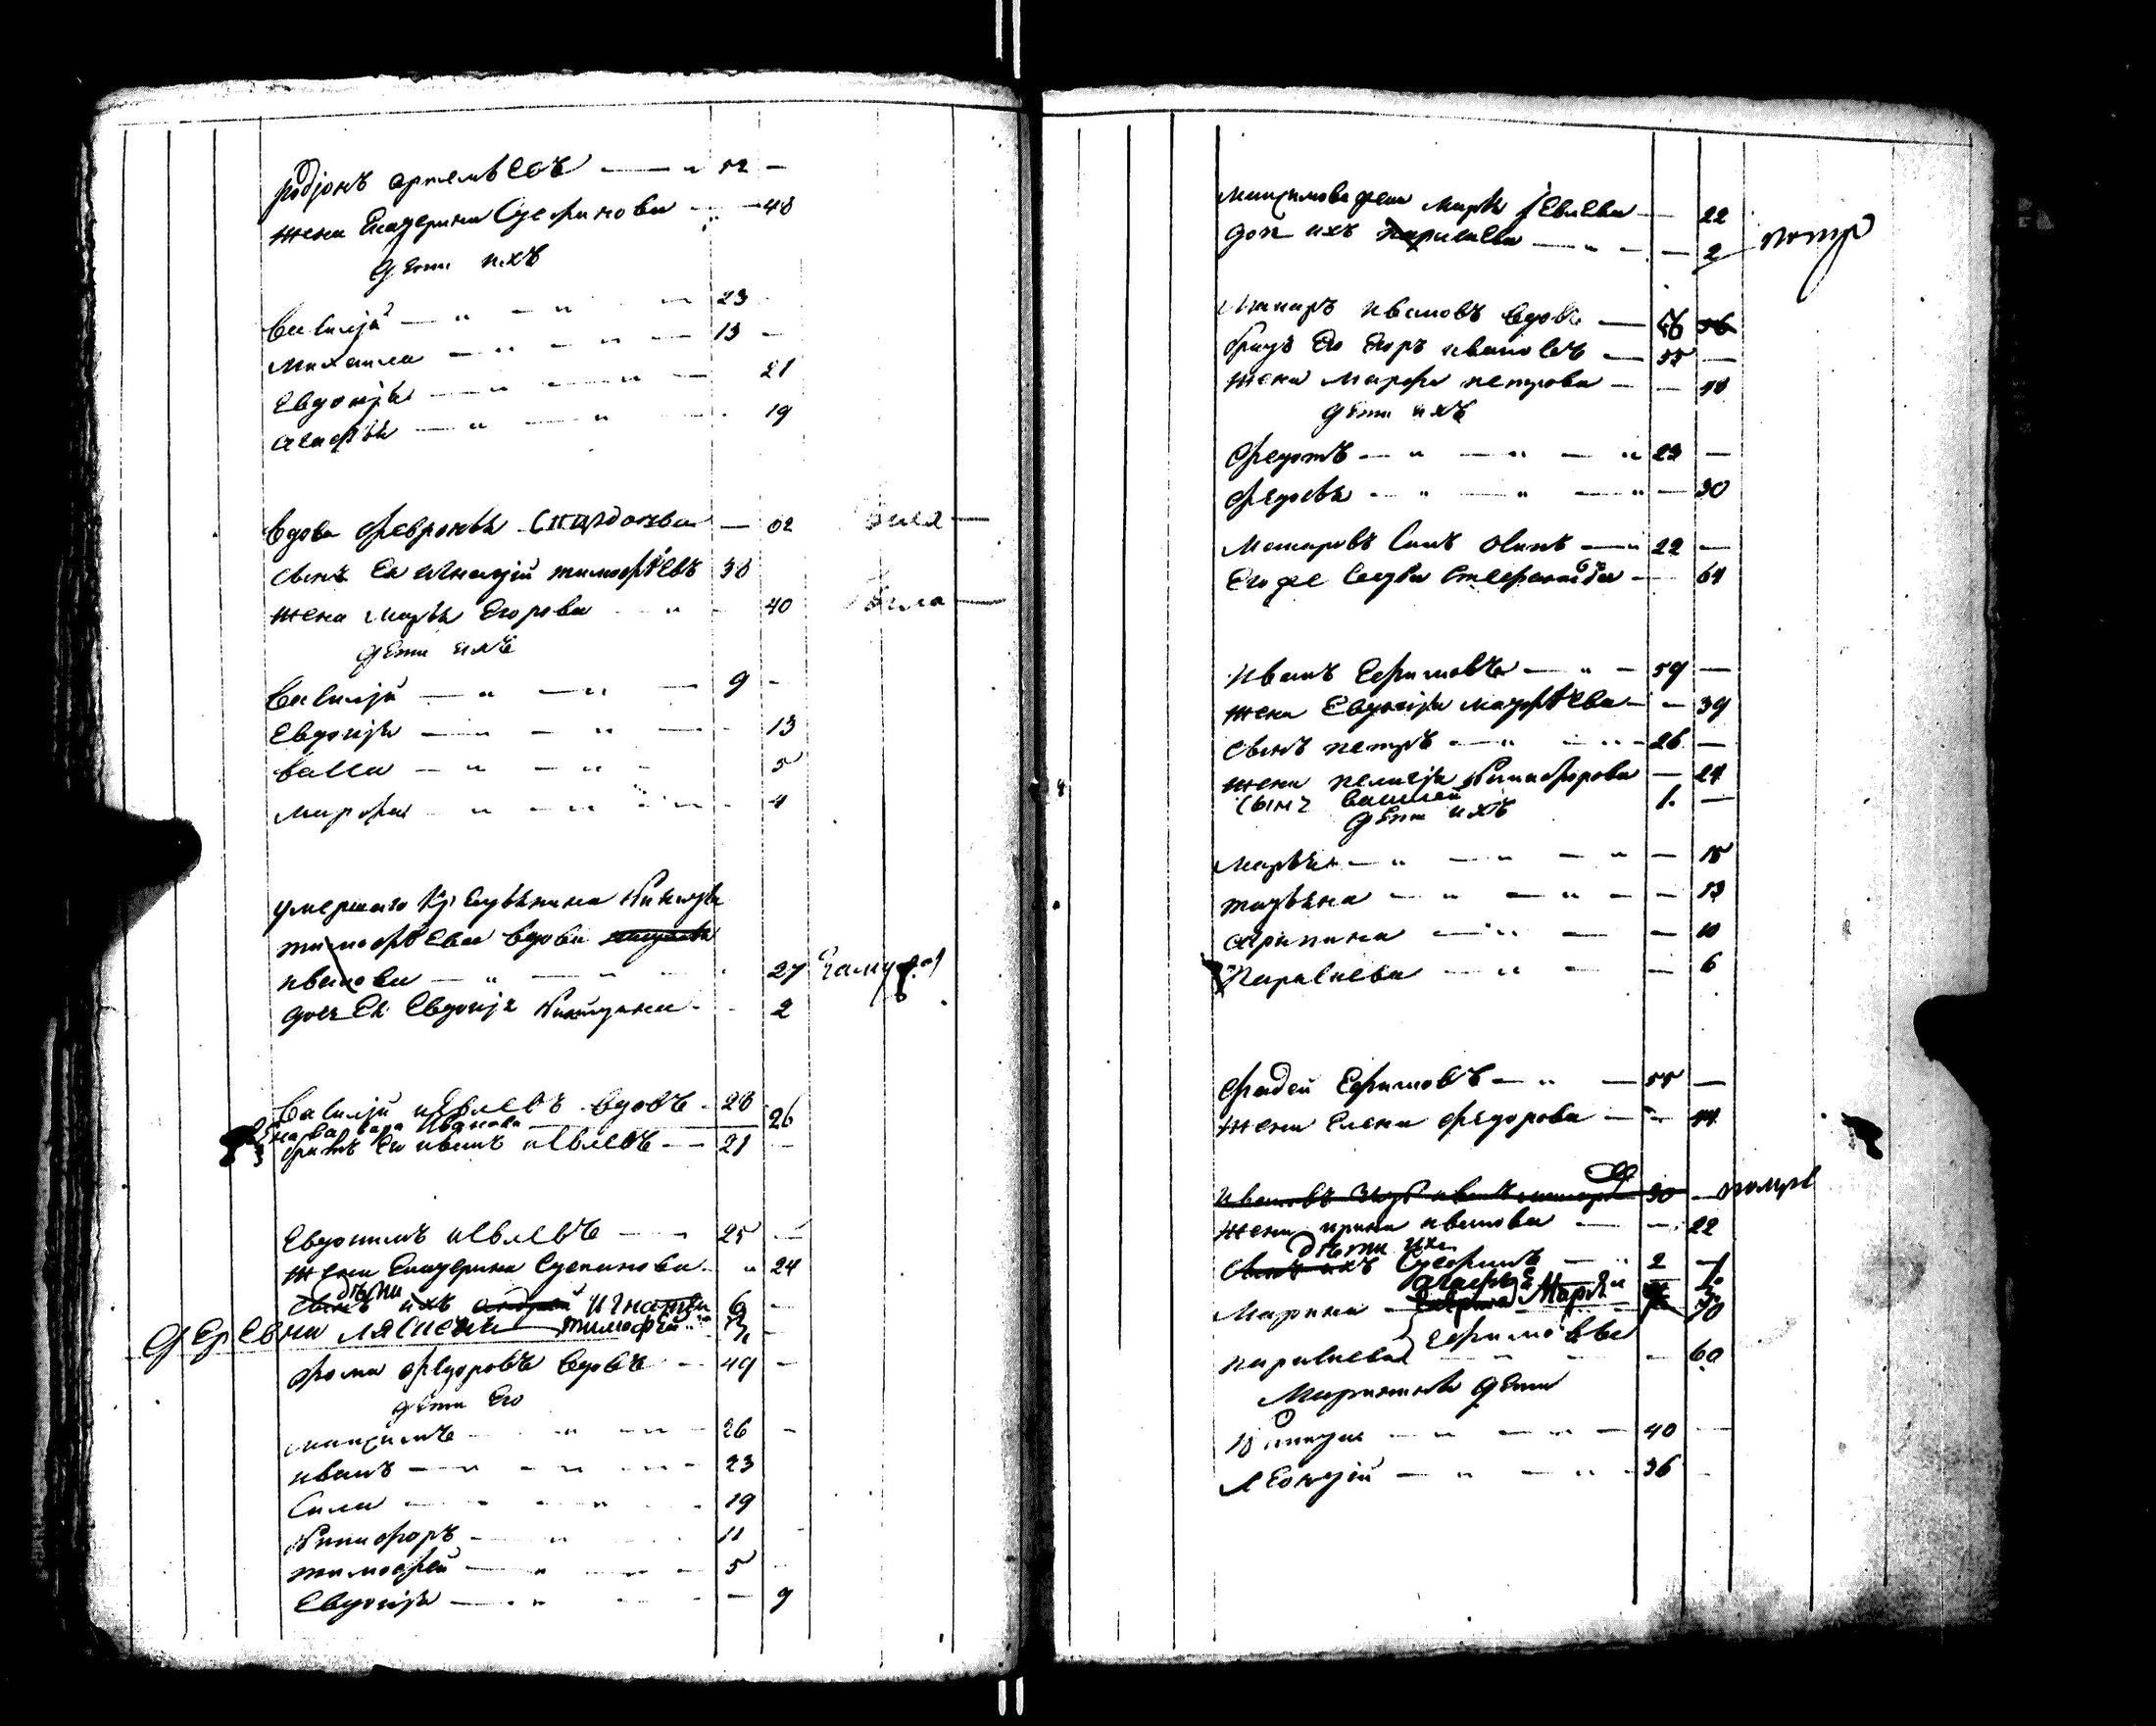 родіонъ артемьевъ — 52 —
жена Екатерина Сте­фанова — 48
дети ихъ
василій — 23
михаила — 13 —
Евдокія — 21
агафья — 19
вдова февронья Спиридонова — 62
сынъ Ея игнатій тимофѣевъ 38
жена марья Егорова — 40
дети ихъ
василій — 9 —
Евдокія — 13
васса — 5
марфа — 4
умершаго крестьянина никиты
тимофѣева вдова
иванова — 27
дочь Ея Евдокія никитина — 2
василій иевлевъ вдовъ 28
жена варвара Иванова 26
братъ Его иванъ иевлевъ — 21 —
Евдокимъ иевлевъ — 25 —
жена Екатерина Степанова 24
дѣти ихъ Игнатій 6 —
тимофѣй 3 —
деревни
фома федоровъ вдовъ — 49 —
дети Его
максимъ — 26 —
иванъ — 23
Сила — 19
никифоръ — 11
тимофей — 5
Евдокія — 9
максимова жена марья Иевлева — 22
дочь ихъ параскева — 2
макаръ ивановъ вдовъ — 56
братъ Его Егоръ ивановъ — 55 —
жена марфа петрова — 48
дети ихъ
федотъ — 23 —
федосья — 30
макаровъ сынъ осипъ — 22 —
Его же сестра стефанида — 64
иванъ Ефимовъ — 59 —
жена Евдокія матфѣева — 39
сынъ петръ — 26 —
жена пелагея никифорова — 24
сынъ василей 1. —
дети ихъ
марья — 15
татьяна — 13
агрипина — 10
параскева — 6
фадей Ефимовъ — 55 —
жена Елена федорова — 44
30 — померъ
жена ирина иванова — 22
дѣти ихъ
Стефанъ — 2
агафья
Марья
марина — 70
Ефимовы
параскева — 60
маринины дети
никита — 40
леонтій — 36